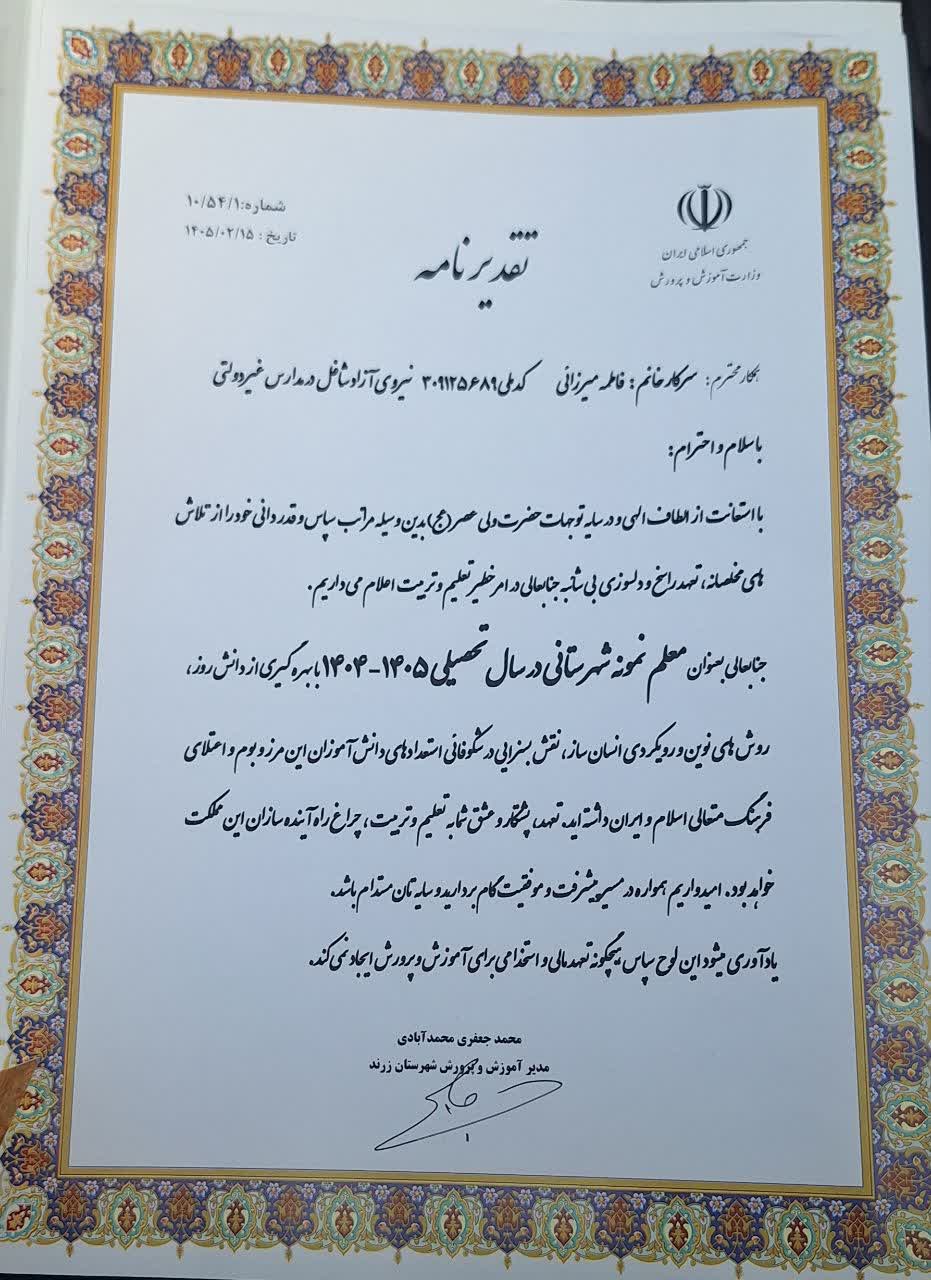 جمهوری اسلامی ایران
وزارت آموزش و پرورش
شماره: ۱۰/۵۴/۱
تاریخ: ۱۴۰۵/۰۲/۱۵
تقدیرنامه
همکار محترم: سرکار خانم: فاطمه میرزائی کد ملی ۳۰۹۱۲۵۶۸۹ نیروی آزاد شاغل در مدارس غیر دولتی
با سلام و احترام:
با استعانت از الطاف الهی و در سایه توجهات حضرت ولی عصر (عج) بدین وسیله مراتب سپاس و قدردانی خود را از تلاش
های مخلصانه، تعهد راسخ و دلسوزی بی شائبه جنابعالی در امر خطیر تعلیم و تربیت اعلام می داریم.
جنابعالی بعنوان معلم نمونه شهرستانی در سال تحصیلی ۱۴۰۵-۱۴۰۴ با بهره گیری از دانش روز،
روش های نوین و رویکردی انسان ساز، نقش بسزایی در شکوفائی استعدادهای دانش آموزان این مرز و بوم و اعتلای
فرهنگ متعالی اسلام و ایران داشته اید. تعهد، پشتکار و عشق شما به تعلیم و تربیت، چراغ راه آینده سازان این مملکت
خواهد بود. امیدواریم همواره در مسیر پیشرفت و موفقیت گام بردارید و سایه تان مستدام باشد.
یادآوری میشود این لوح سپاس هیچگونه تعهد مالی و استخدامی برای آموزش و پرورش ایجاد نمی کند.
محمد جعفری محمدآبادی
مدیر آموزش و پرورش شهرستان زرند